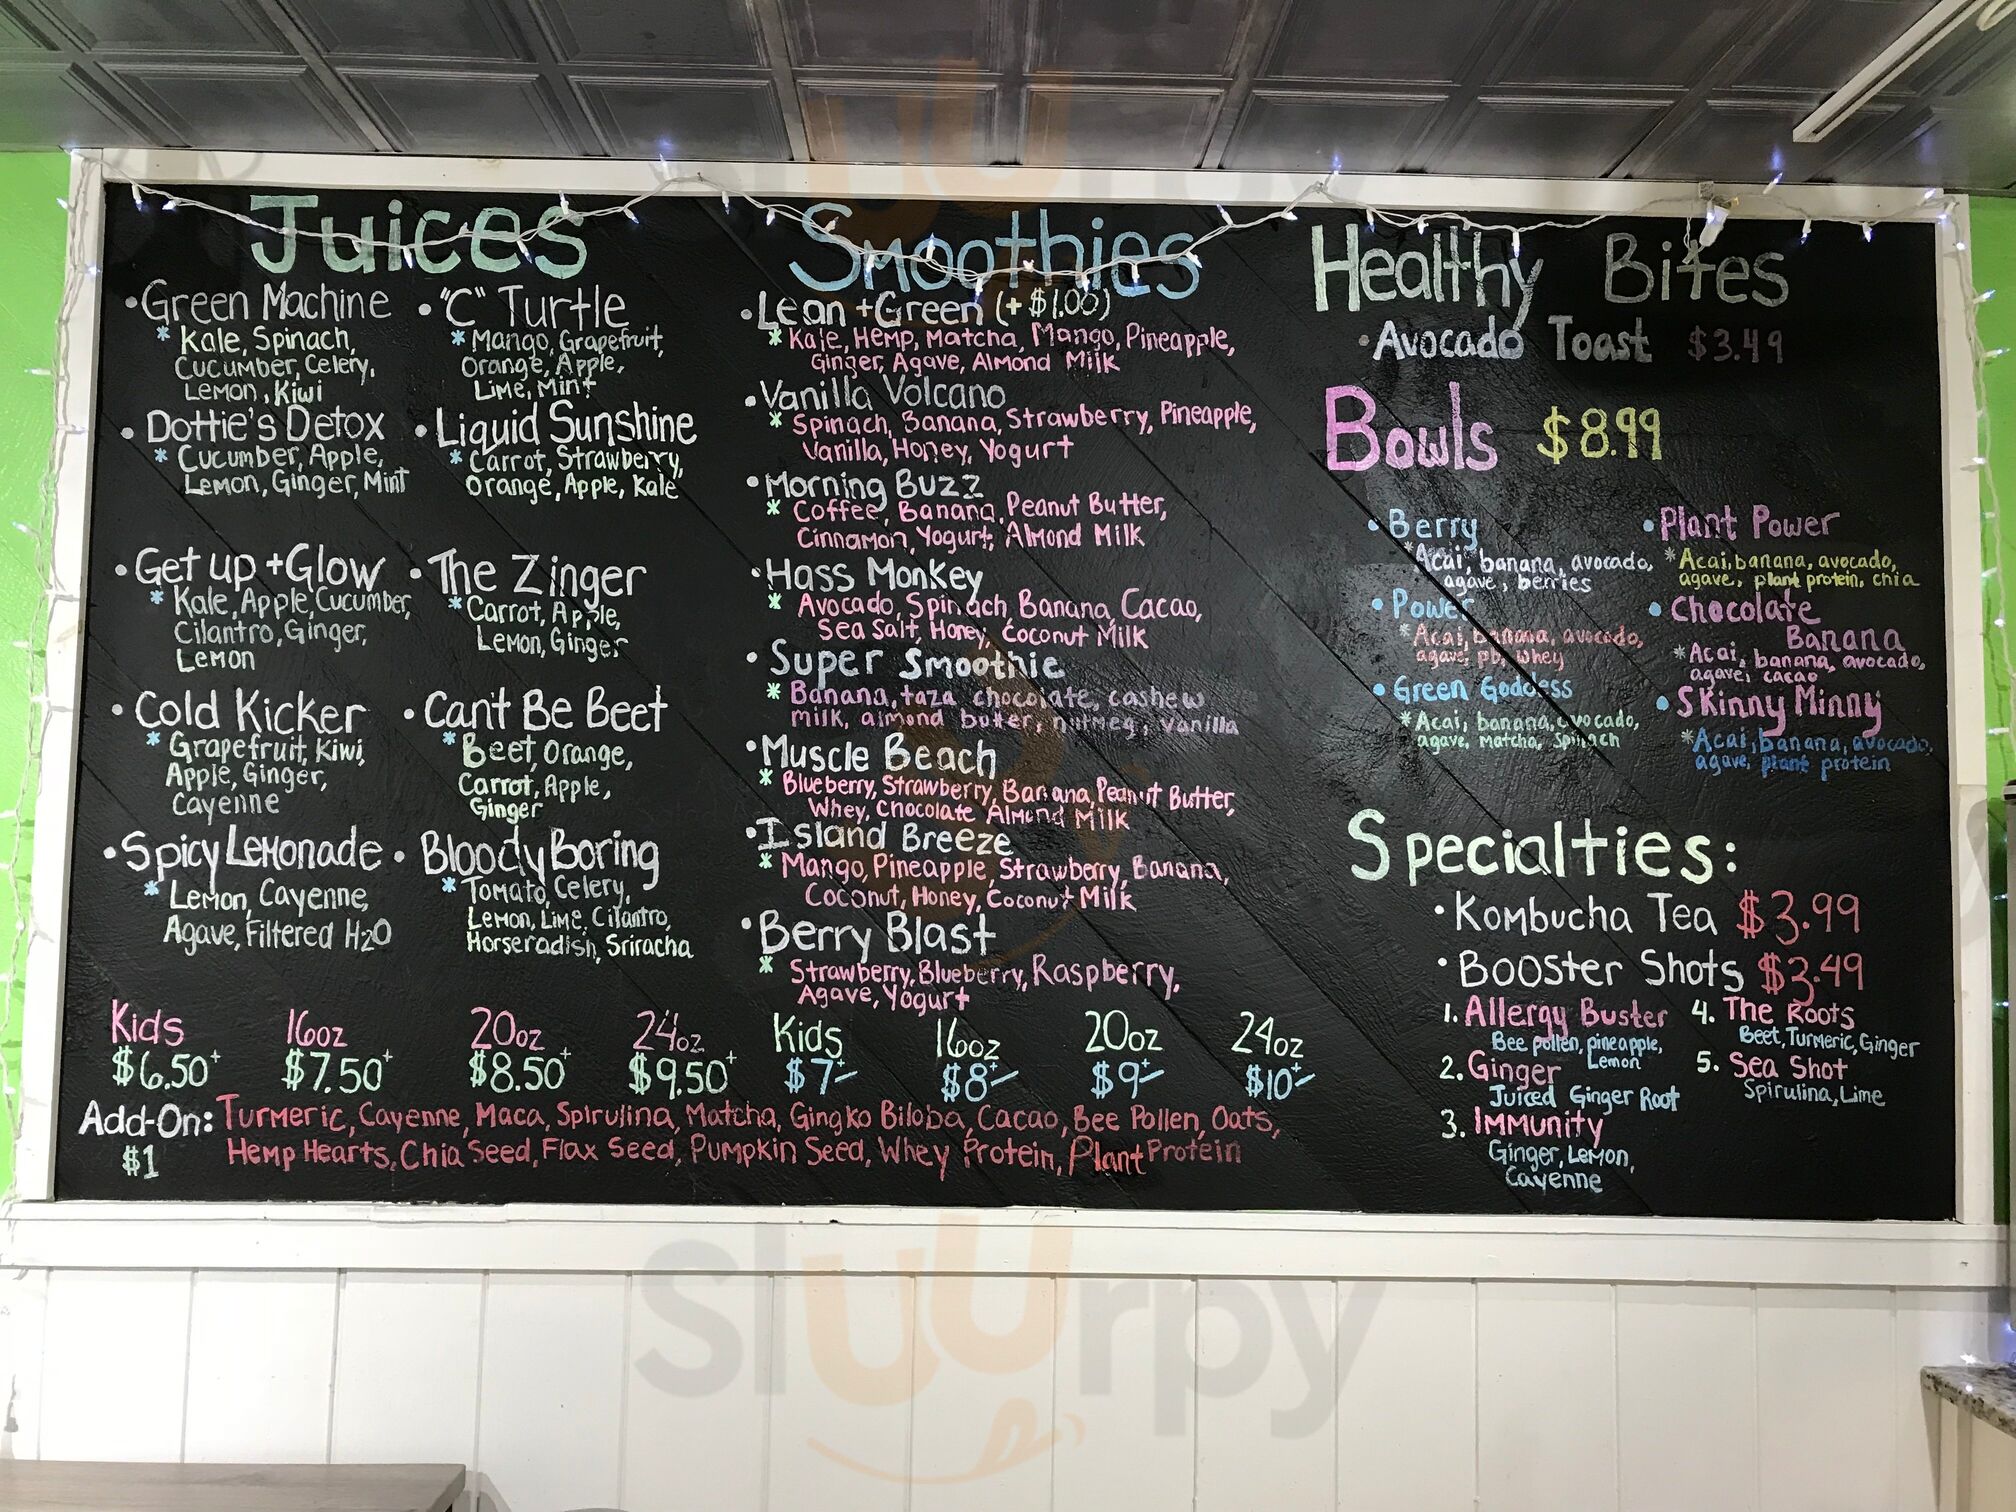 Juices
• Green Machine
* Kale, Spinach,
Cucumber, Celery,
Lemon, Kiwi
• Dottie's Detox
* Cucumber, Apple,
Lemon, Ginger, Mint
• Get up + Glow
* Kale, Apple, Cucumber,
Cilantro, Ginger,
Lemon
• Cold Kicker
* Grapefruit, Kiwi,
Apple, Ginger,
Cayenne
• Spicy Lemonade
* Lemon, Cayenne,
Agave, Filtered H2O
• "C" Turtle
* Mango, Grapefruit,
Orange, Apple,
Lime, Mint
• Liquid Sunshine
* Carrot, Strawberry,
Orange, Apple, Kale
• The Zinger
* Carrot, Apple,
Lemon, Ginger
• Can't Be Beet
* Beet, Orange,
Carrot, Apple,
Ginger
• Bloody Boring
* Tomato, Celery,
Lemon, Lime, Cilantro,
Horseradish, Sriracha
Kids 16oz 20oz 24oz
$6.50+ $7.50+ $8.50+ $9.50+
Smoothies
• Lean + Green (+ $1.00)
* Kale, Hemp, Matcha, Mango, Pineapple,
Ginger, Agave, Almond Milk
• Vanilla Volcano
* Spinach, Banana, Strawberry, Pineapple,
Vanilla, Honey, Yogurt
• Morning Buzz
* Coffee, Banana, Peanut Butter,
Cinnamon, Yogurt, Almond Milk
• Hass Monkey
* Avocado, Spinach, Banana, Cacao,
Sea Salt, Honey, Coconut Milk
• Super Smoothie
* Banana, taza chocolate, cashew
milk, almond butter, nutmeg, vanilla
• Muscle Beach
* Blueberry, Strawberry, Banana, Peanut Butter,
Whey, Chocolate Almond Milk
• Island Breeze
* Mango, Pineapple, Strawberry, Banana,
Coconut, Honey, Coconut Milk
• Berry Blast
* Strawberry, Blueberry, Raspberry,
Agave, Yogurt
Kids 16oz 20oz 24oz
$7+ $8+ $9+ $10+
Add-On: Turmeric, Cayenne, Maca, Spirulina, Matcha, Gingko Biloba, Cacao, Bee Pollen, Oats,
$1 Hemp Hearts, Chia Seed, Flax Seed, Pumpkin Seed, Whey Protein, Plant Protein
Healthy Bites
• Avocado Toast $3.49
Bowls $8.99
• Berry
* Acai, banana, avocado,
agave, berries
• Power
* Acai, banana, avocado,
agave, pb, whey
• Green Goddess
* Acai, banana, avocado,
agave, matcha, spinach
• Plant Power
* Acai, banana, avocado,
agave, plant protein, chia
• Chocolate
Banana
* Acai, banana, avocado,
agave, cacao
• Skinny Minny
* Acai, banana, avocado,
agave, plant protein
Specialties:
• Kombucha Tea $3.99
• Booster Shots $3.49
1. Allergy Buster
Bee pollen, pineapple,
Lemon
2. Ginger
Juiced Ginger Root
3. Immunity
Ginger, Lemon,
Cayenne
4. The Roots
Beet, Turmeric, Ginger
5. Sea Shot
Spirulina, Lime
sluurpy
sluurpy